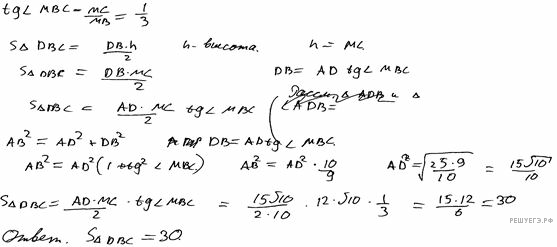 tg∠MBC = MC/MB = 1/3
S△DBC = DB·h/2   h - высота.   h = MC
S△DBC = DB·MC/2   DB = AD tg∠MBC
S△DBC = AD·MC/2 tg∠MBC   ∠ADB=
AB² = AD² + DB²   DB = AD tg∠MBC
AB² = AD²(1+tg²∠MBC)   AB² = AD²·10/9   AD² = √(25·9/10) = 15√10/10
S△DBC = AD·MC/2 · tg∠MBC = 15√10/2·10 · 12·√10 · 1/3 = 15·12/6 = 30
Ответ. S△DBC = 30.
РЕШУЕГЭ.РФ